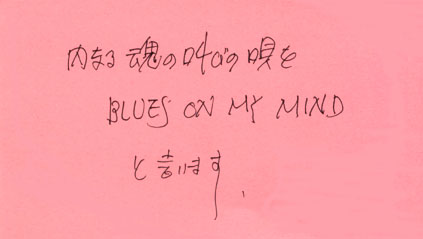 内なる魂の叫びの唄を
BLUES ON MY MIND
と言います.